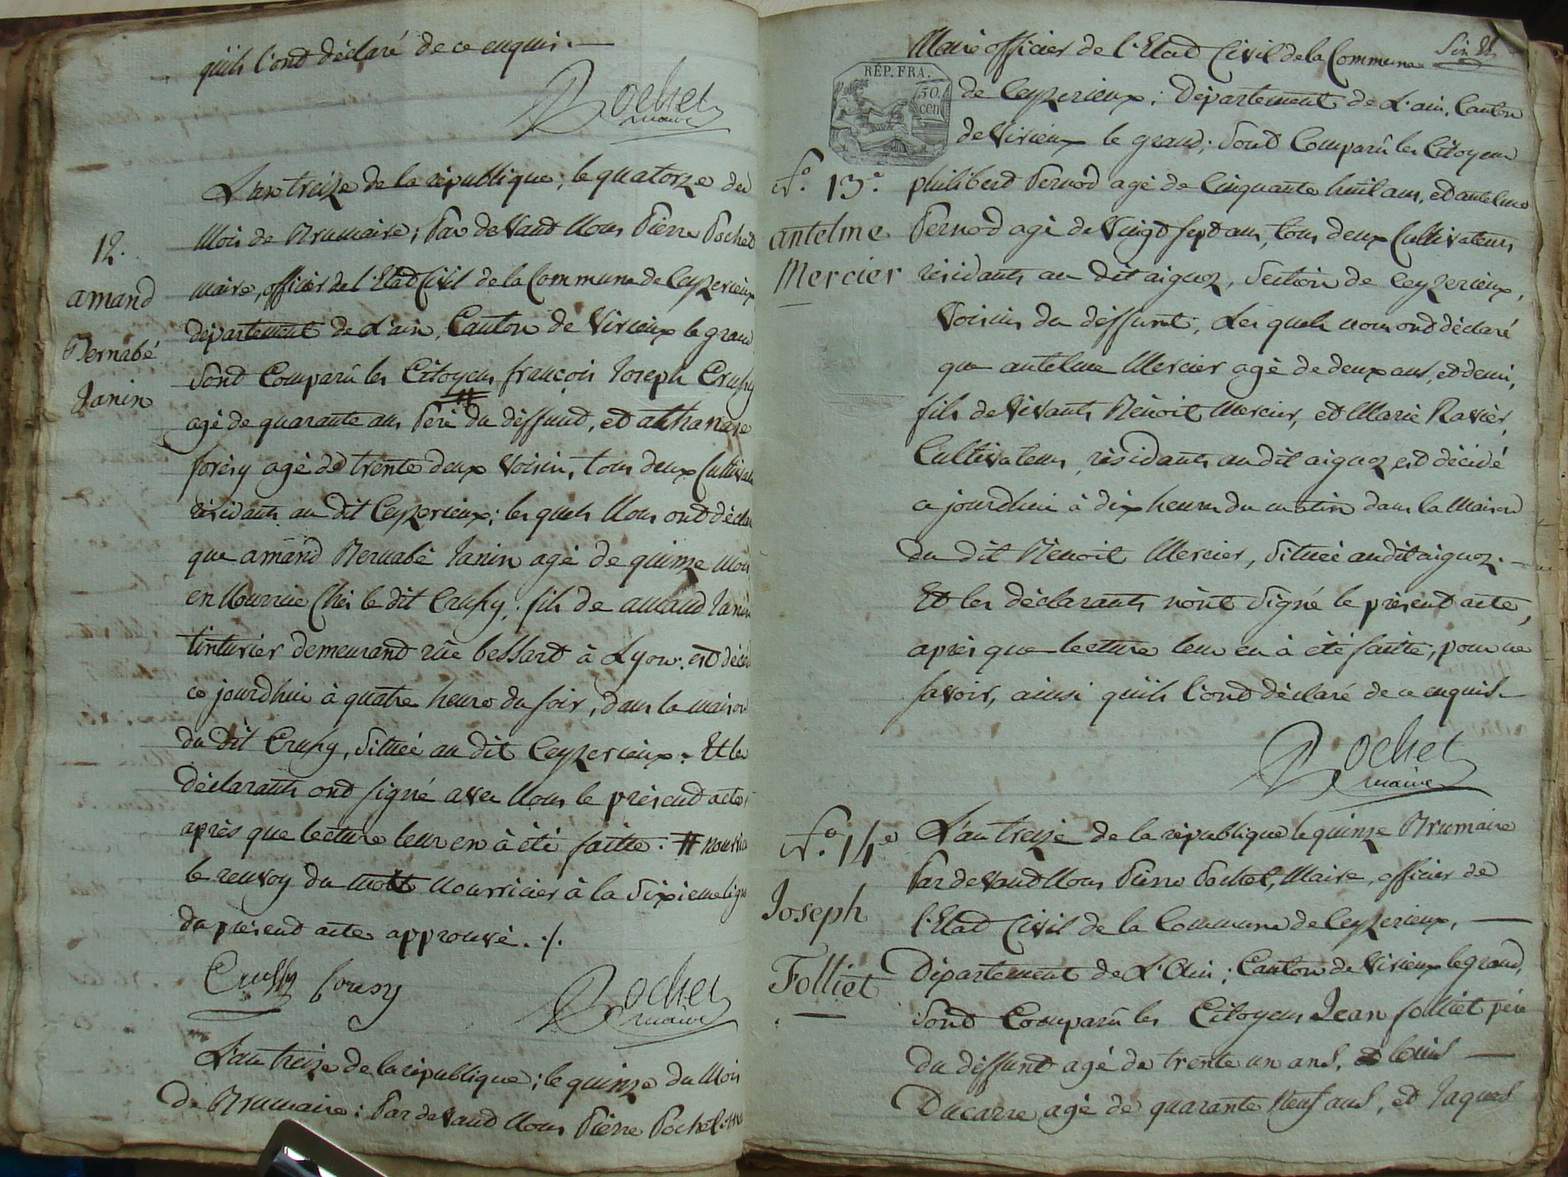 qu'ils l'ont déclaré de ce enquis.
Rochet
maire
12.
amand
Bernabé
Janin
L'an treize de la république, le quatorze du
Mois de Brumaire, Par devant Nous Pierre Rochet
maire, officier de l'Etat Civil de la Commune de Ceyzerieux
département de L'ain, Canton de Virieux le grand
Sont Comparu les Citoyens françois Joseph
agé de quarante ans Père du deffunt, et athanase
forésy agé de trente deux Voisin, tous deux Cultivateurs
résidants au dit Ceyzerieux; les quels Nous ont déclaré
que amand Bernabé Janin agé de quinze mois
en Nourrice Chés le dit, fils de amand Janin
tinturier demeurant rüe à Lyon. est décédé
ce jourdhui à quatre heure du soir, dans la maison
du dit, Sittuée au dit Ceyzerieux. Et les
déclarants ont signé avec Nous le présent acte,
après que lecture leur en à été faitte. # nourricier
le renvoy du mot Nourricier à la Sixieme ligne
du présent acte approuvé. ./.
Rochet
maire
L'an treize de la république; le quinze du Mois
de Brumaire; Par devant Nous Pierre Rochet
Maire officier de l'Etat Civil de la Commune
REP. FRA.
50
CEN
de Ceyzerieux; département de L'ain, Canton
de Virieux le grand; Sont Comparu les Citoyens
N.° 13.
antelme
Mercier
philibert Pernod agé de Cinquante huit ans, et antelme
Pernod agé de Vingt sept ans, tous deux Cultivateurs
résidants au dit aignoz, Section de Ceyzerieux,
Voisins du deffunt, Les quels nous ont déclaré
que antelme Mercier agé de deux ans, et demi,
fils de Vivants Bénoit Mercier, et Marie Ravier,
Cultivateurs, résidants au dit aignoz est décédé
ce jourdhui à dix heures du matin dans la Maison
du dit Bénoit Mercier, Sittuée au dit aignoz.
Et les déclarants n'ont Signé le présent acte,
après que lecture leur en à été faitte, pour ne
savoir, ainsi qu'ils l'ont déclaré de ce enquis.
Rochet
maire
N.° 14.
Joseph
Folliet
L'an treize de la république le quinze Brumaire
Par devant Nous Pierre Rochet, Maire, officier de
l'Etat Civil de la Commune de Ceyzerieux,
Département de L'Ain; Canton de Virieux le grand
Sont Comparu les Citoyens Jean folliet père
du deffunt agé de trente un ans, et Louis
Ducarre agé de quarante Neuf ans, et Jaques